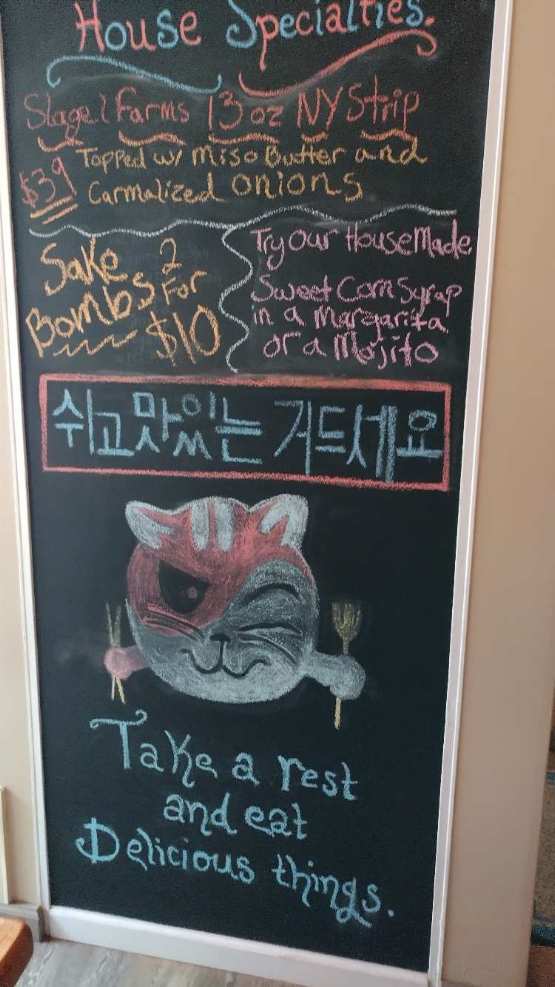 House Specialties.
Stage 2 Farms 13 oz NY Strip
$39 Topped w/ miso Butter and
Carmalized onions
Sake 2
Bombs For
$10
Try our House Made
Sweet Corn Syrup
in a Margarita
or a Mojito
쉬고 맛있는 거드세요
Take a rest
and eat
Delicious things.